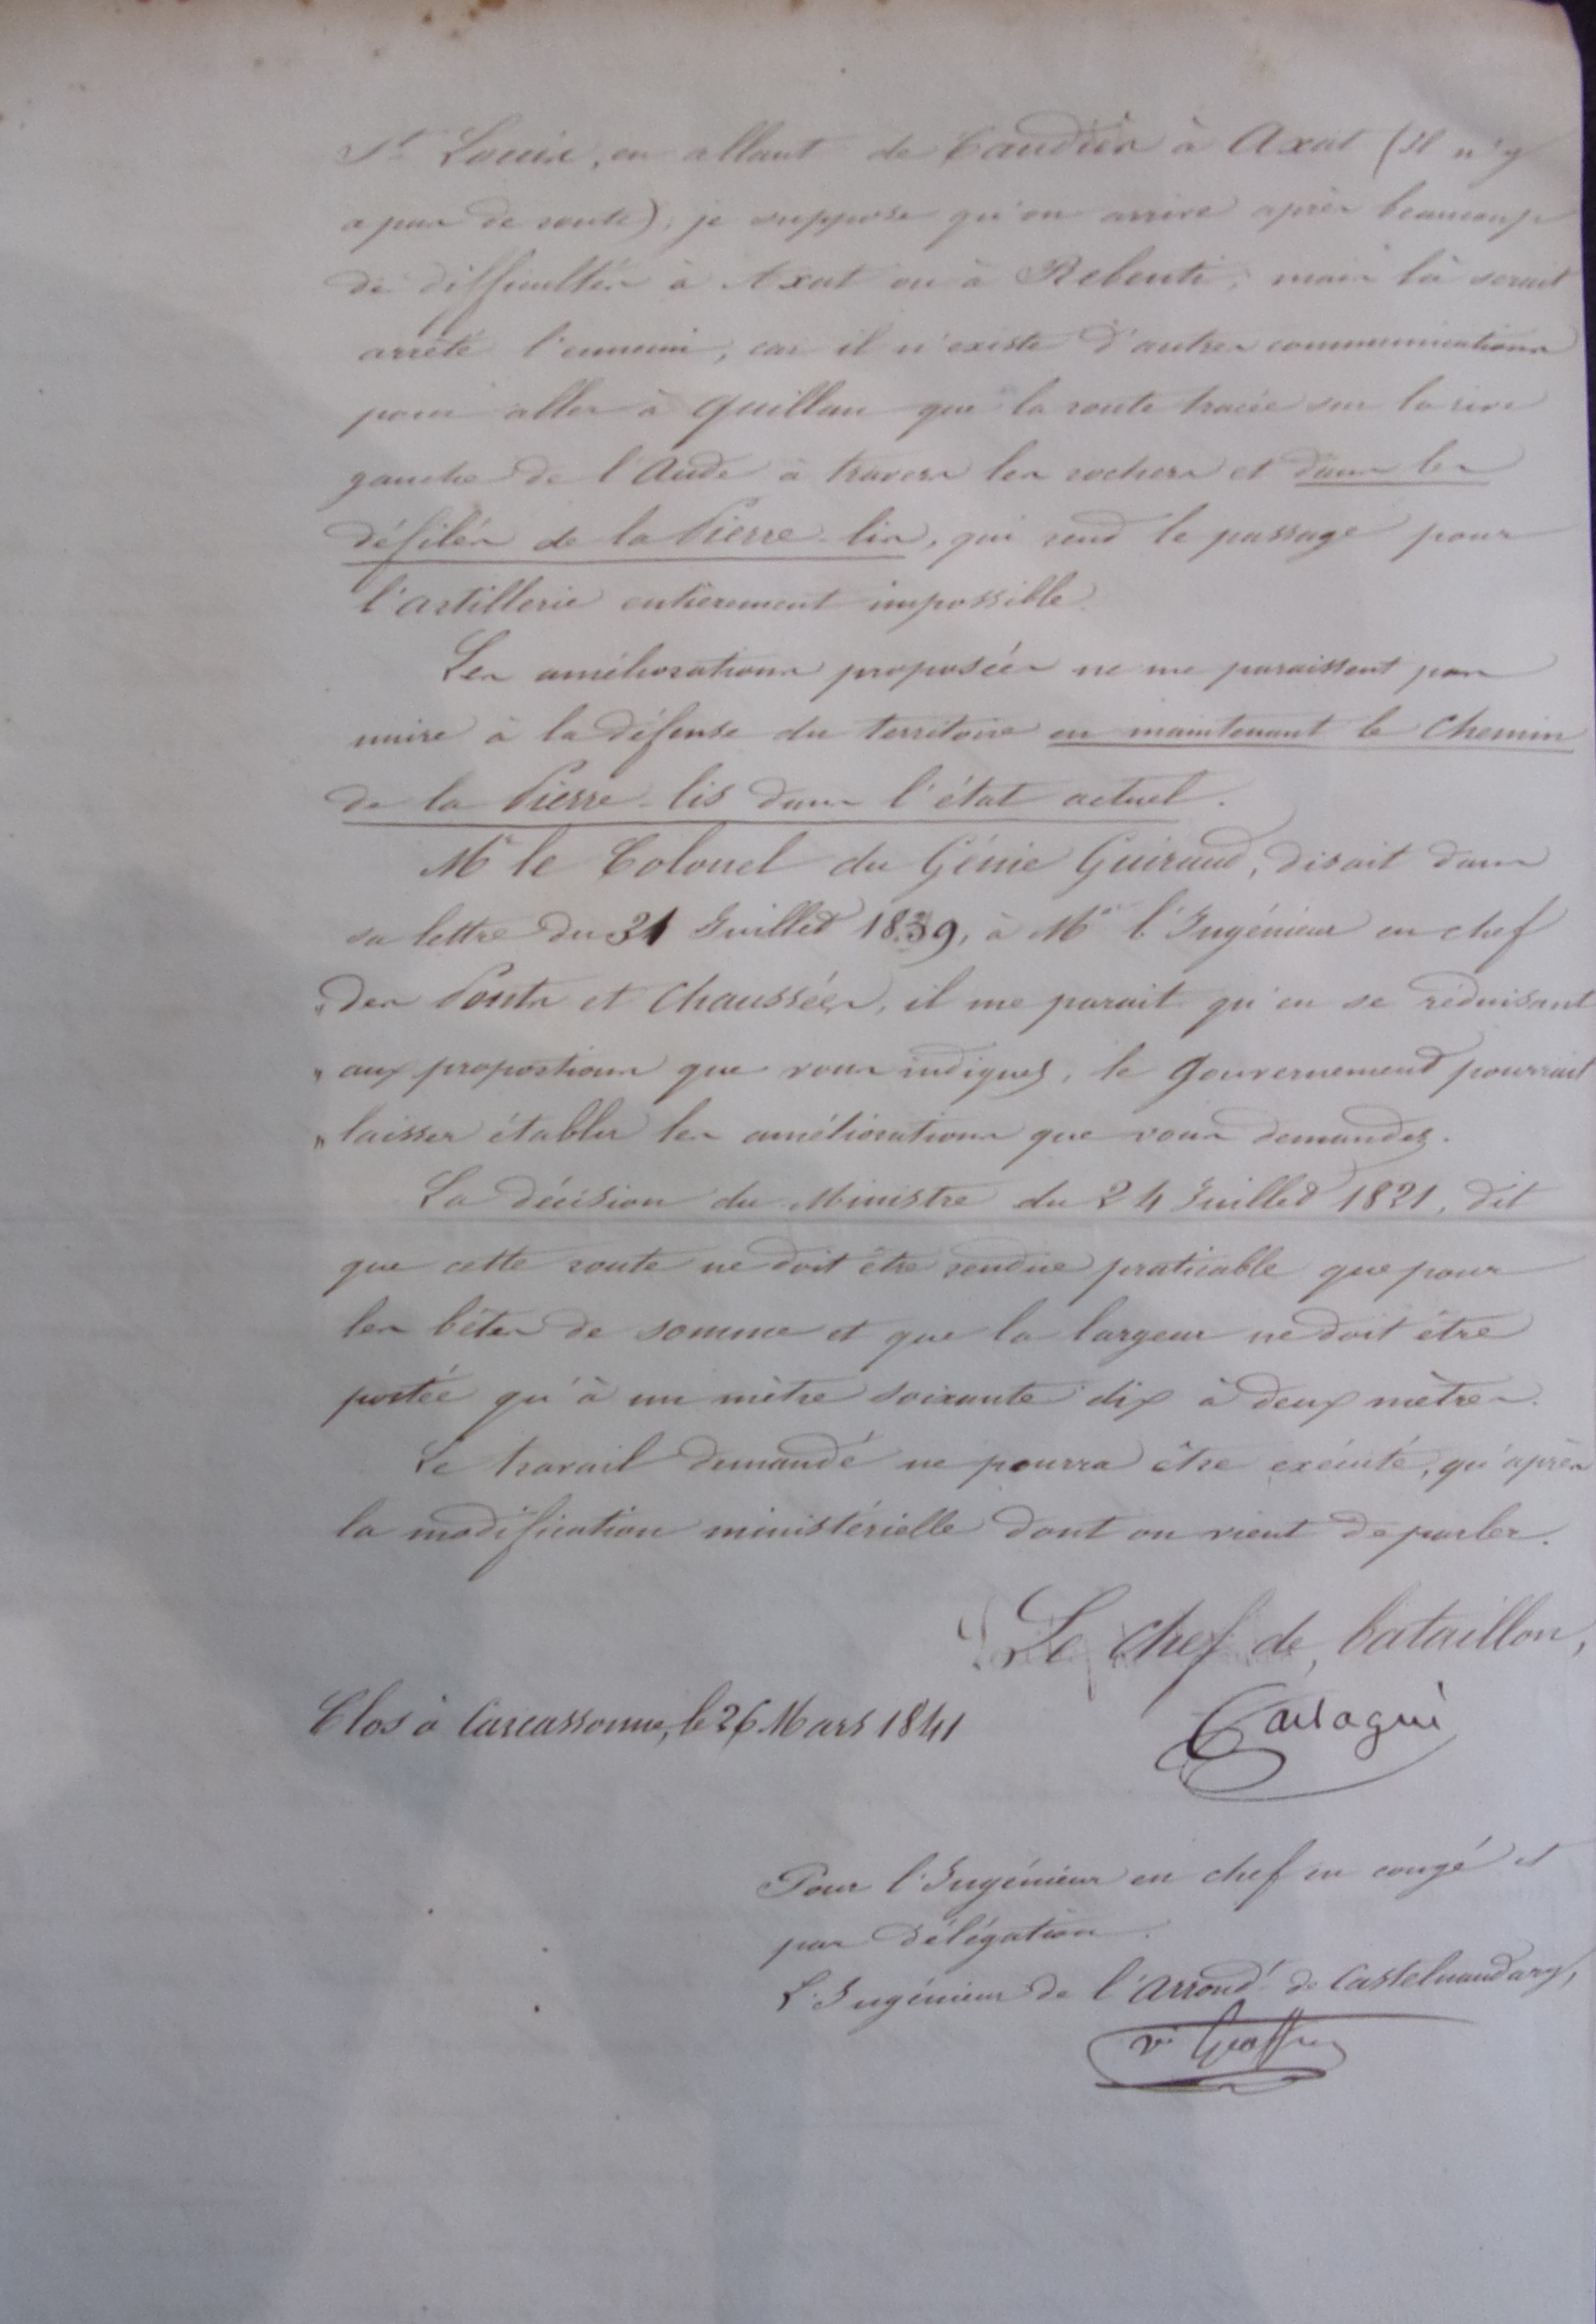 St Louis, en allant de Caudiès à Axat (il n'y
a pas de route), je suppose qu'on arrive après beaucoup
de difficultés à Axat ou à Rebenti, mais là serait
arrêté l'ennemi, car il n'existe d'autres communications
pour aller à Quillan que la route tracée sur la rive
gauche de l'Aude à travers les rochers et dans les
défilés de la Pierre-lis, qui rend le passage pour
l'artillerie entièrement impossible.
Les améliorations proposées ne me paraissent pas
nuire à la défense du territoire en maintenant le Chemin
de la Pierre-lis dans l'état actuel.
Mr le Colonel du Génie Guiraud, disait dans
sa lettre du 31 Juillet 1839, à Mr l'Ingénieur en chef
„ des Ponts et Chaussées, il me parait qu'en se réduisant
„ aux proportions que vous indiquez, le Gouvernement pourrait
„ laisser établir les améliorations que vous demandez.
La décision du Ministre du 24 Juillet 1821, dit
que cette route ne doit être rendue praticable que pour
les bêtes de somme et que la largeur ne doit être
portée qu'à un mètre soixante dix à deux mètres.
Le travail demandé ne pourra être exécuté, qu'après
la modification ministérielle dont on vient de parler.
Le chef de bataillon,
Clos à Carcassonne, le 26 Mars 1841
Pour l'Ingénieur en chef en congé et
par délégation.
L'Ingénieur de l'Arrondt de Castelnaudary,